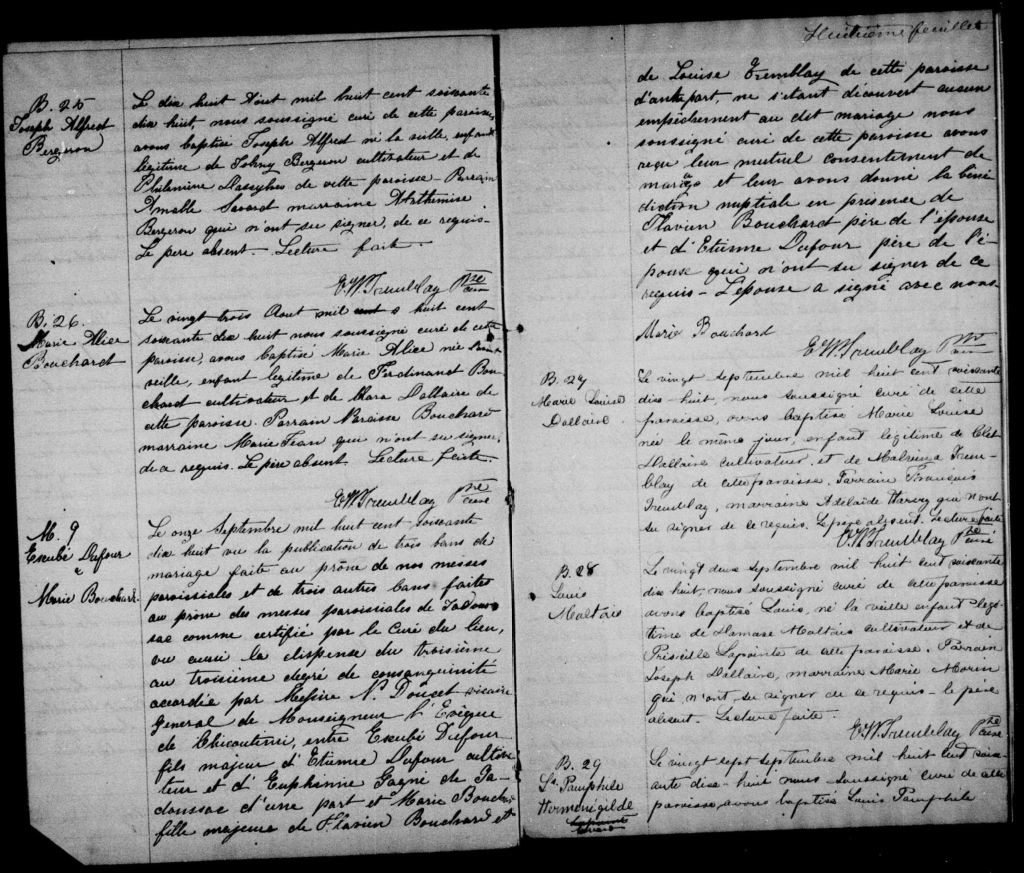 B. 25
Joseph Alfred
Bergeron
Le dix huit Aout mil huit cent soixante
dix huit, nous soussigné curé de cette paroisse,
avons baptisé Joseph Alfred né la veille, enfant
légitime de Johny Bergeron cultivateur et de
Philomène de cette paroisse - Parrain
Amable Savard marraine
Bergeron qui n'ont su signer, de ce requis -
Le père absent - Lecture faite -
E. W. Tremblay Ptre Curé
B. 26.
Marie Alice
Bouchard
Le vingt trois Aout mil huit cent
soixante dix huit nous soussigné curé de cette
paroisse, avons baptisé Marie Alice née
veille, enfant legitime de Ferdinand Bou
chard - cultivateur et de Clara Dallaire de
cette paroisse. Parrain Narcisse Bouchard
marraine Marie Jean qui n'ont su signer,
de ce requis. Le père absent. Lecture faite.
E. W. Tremblay Ptre Curé
M. 9
Exubé Dufour
&
Marie Bouchard
Le onze Septembre mil huit cent soixante
dix huit vu la publication de trois bans de
mariage faite au prône de nos messes
paroissiales et de trois autres bans faites
au prône des messes paroissiales de Tadous
sac comme certifié par le Curé du lieu,
vu aussi la dispense du troisième
au troisième degré de consanguinité
accordée par Messire N. Doucet vicaire
General de Monseigneur l'Evêque
de Chicoutimi, entre Exubé Dufour
fils majeur d'Etienne Dufour cultiva
teur et d'Euphémie Gagné de Ta-
doussac d'une part et Marie Bouchard
fille majeure de Flavien Bouchard et
Huitième feuillet
de Louise Tremblay de cette paroisse
d'autre part, ne s'étant découvert aucun
empêchement au dit mariage nous
soussigné curé de cette paroisse avons
reçu leur mutuel consentement de
mariage et leur avons donné la béné
diction nuptiale en presence de
Flavien Bouchard père de l'épouse
et d'Etienne Dufour père de l'é-
pouse qui n'ont su signer de ce
requis - L'epouse a signé avec nous
Marie Bouchard
E. W. Tremblay Ptre Curé
B. 27
Marie Louise
Dallaire
Le vingt septembre mil huit cent soixante
dix-huit, nous soussigné curé de cette
paroisse, avons baptisé Marie Louise
née le même jour, enfant légitime de
Dallaire cultivateur et de Malvina Trem-
blay de cette paroisse. Parrain François
Tremblay, marraine Adelaïde Harvey qui n'ont
su signer de ce requis. Le père absent. Lecture faite
E. W. Tremblay Ptre Curé
B. 28
Louis
Maltais
Le vingt deux septembre mil huit cent soixante
dix huit, nous soussigné curé de cette paroisse
avons baptisé Louis, né la veille enfant légi-
time de Damase Maltais cultivateur et de
Priscille Lapointe de cette paroisse. Parrain
Joseph Dallaire, marraine Marie Morin
qui n'ont su signer de ce requis - le père
absent - Lecture faite.
E. W. Tremblay Ptre Curé
B. 29
Ls Pamphile
Hermenigilde
Le vingt sept septembre mil huit cent soix-
ante dix-huit nous soussigné curé de cette
paroisse avons baptisé Louis Pamphile